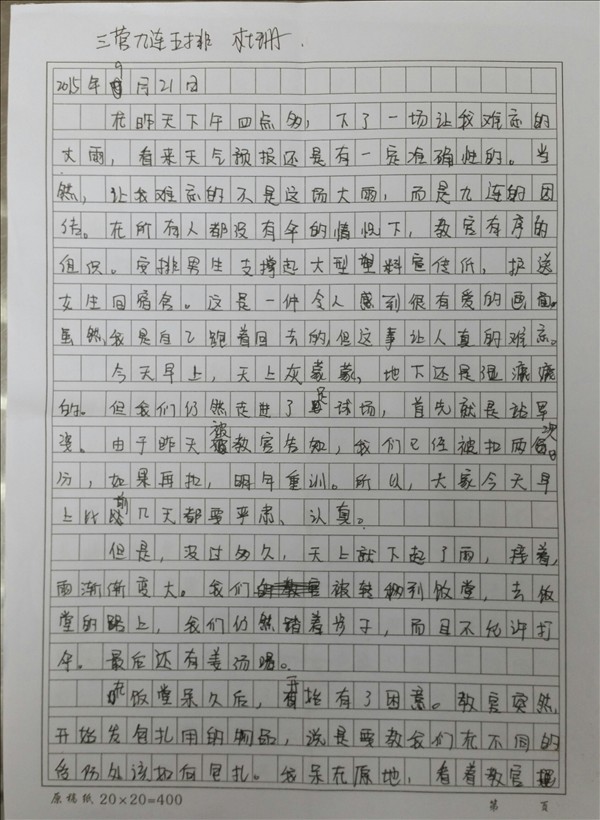 三营九连五排 杜珊.
2015年9月21日
在昨天下午四点多，下了一场让我难忘的
大雨，看来天气预报还是有一定准确性的。当
然，让我难忘的不是这场大雨，而是九连的团
结。在所有人都没有伞的情况下，教官有序的
组织。安排男生支撑起大型塑料宣传纸，护送
女生回宿舍。这是一件令人感到很有爱的画面。
虽然，我是自己跑着回去的，但这事让人真的难忘。
今天早上，天上灰蒙蒙，地下还是湿漉漉
的。但我们仍然走进了足球场，首先就是站军
姿。由于昨天被教官告知，我们已经被扣两次
分，如果再扣，明年重训。所以，大家今天早
上比前几天都要严肃、认真。
但是，没过多久，天上就下起了雨，接着，
雨渐渐变大。我们被转移到饭堂，去饭
堂的路上，我们仍然踏着步子，而且不允许打
伞。最后还有姜汤喝。
在饭堂呆久后，开始有了困意。教官突然
开始发包扎用的物品，说是要教我们在不同的
受伤处该如何包扎。我呆在原地，看着教官
原稿纸 20×20=400 第 页